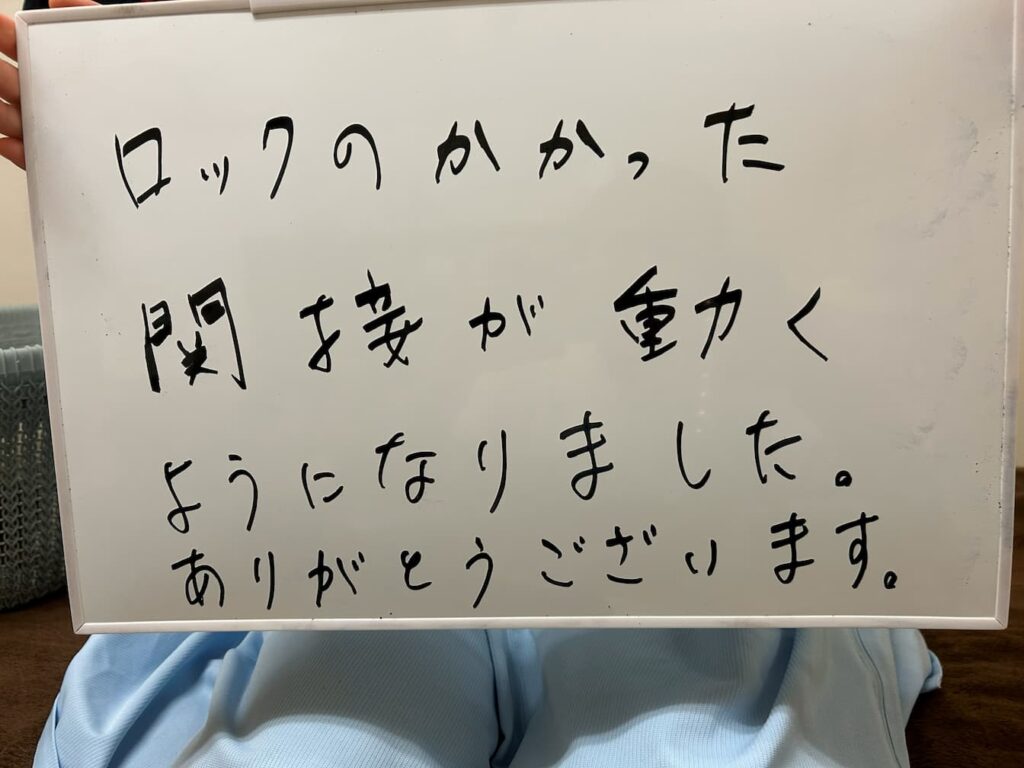 ロックのかかった
関接が動く
ようになりました。
ありがとうございます。